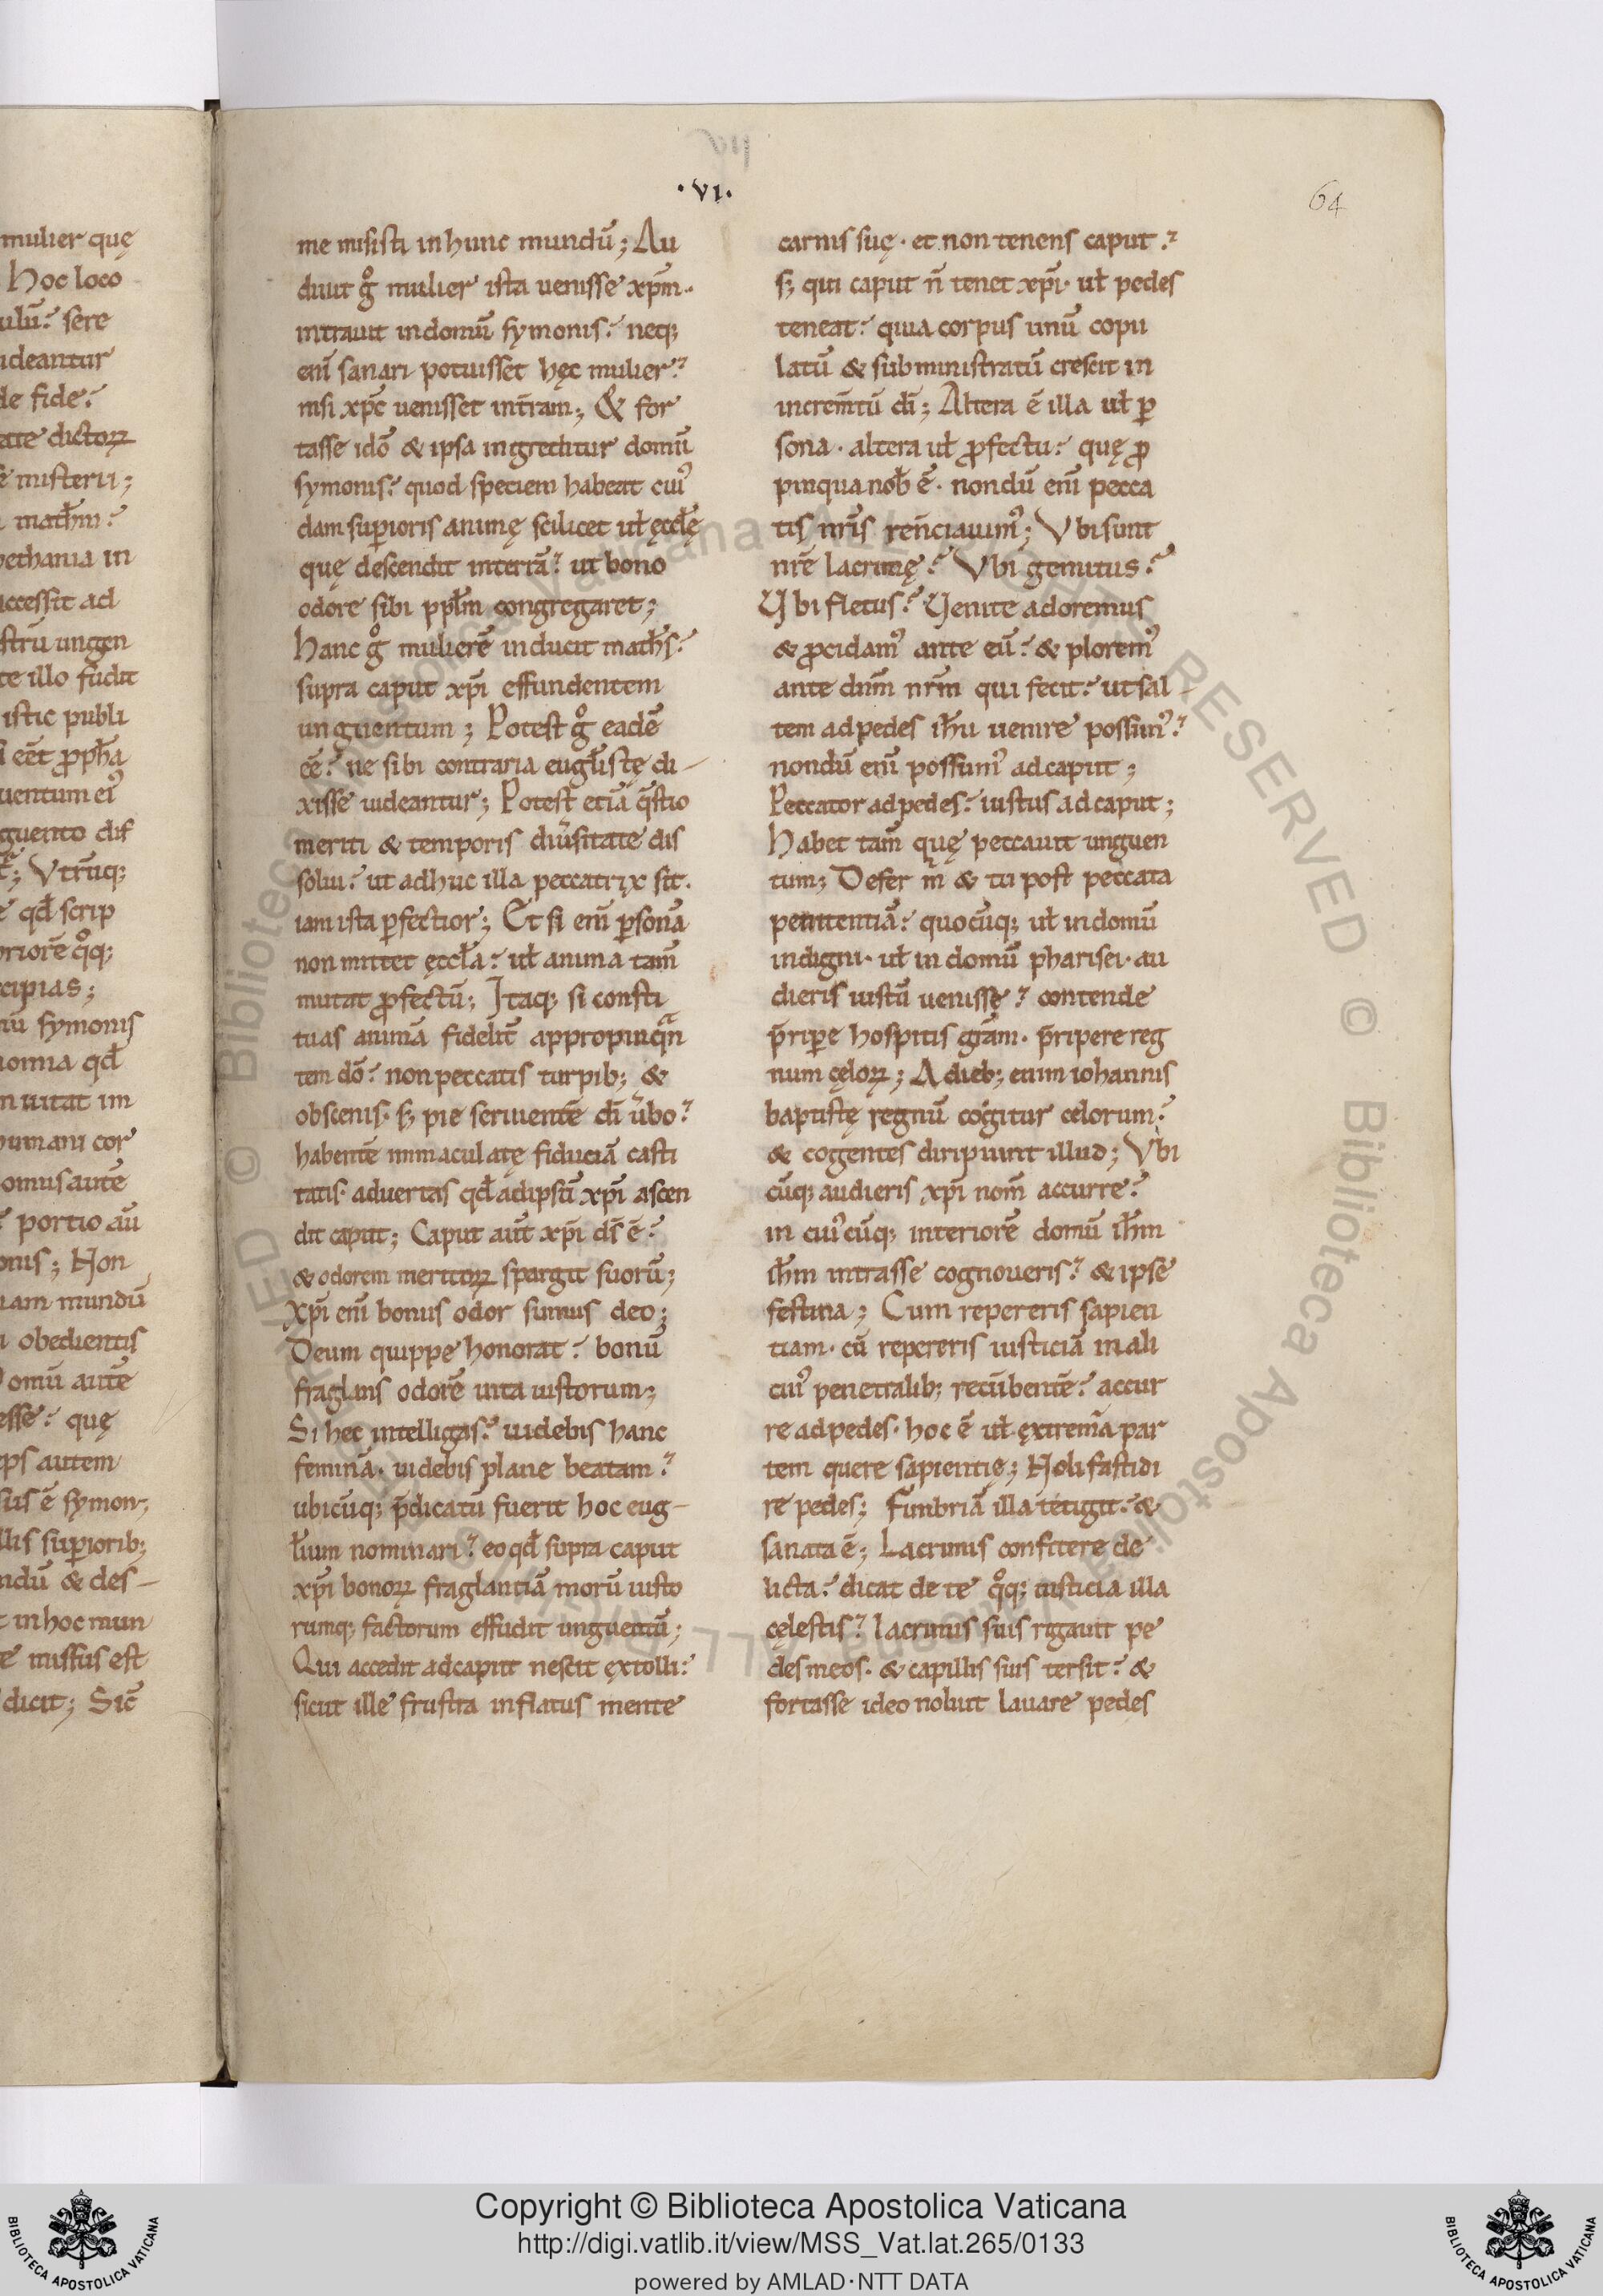 mulier quę
Hoc loco
ulū? sere
ideantur
de fide?
tate dictoꝝ
misterii;
math̄m?
bethania in
accessit ad
strū ungen
te illo fudit
istic publi
eēt ꝓph̄a
uentum eiꝰ
guento dif
Vtrūq;
qđ scrip
priorē qͦq;
cipias;
symonis
omnia qđ
nuitat im
humani cor
omus autē
portio aū
onis; Non
iam mundū
obedientis
Domū autē
esse? quę
eps autem
ē symon,
llis supiorib;
ndū & des-
in hoc mun
missus est
dicit; Sic̄
·VI·
64
me misisti in hunc mundū; Au
diuit gͦ mulier ista uenisse xp̄m·
intrauit in domū symonis? neq;
eni̅ sanari potuisset hęc mulier?
nisi xp̄c uenisset in t̄ram; & for
tasse idō & ipsa ingreditur domū
symonis? quod speciem habeat cuiꝰ
dam supioris animę scilicet uł ęccłę
quę descendit in terrā? ut bono
odore sibi ppłm congregaret;
Hanc gͦ mulierē inducit math̄s?
supra caput xp̄i effundentem
unguentum; Potest gͦ eadē
eē? ne sibi contraria eug̅listę di-
xisse uideantur; Potest etiā q̄stio
meriti & temporis diu̾sitate dis
solui? ut adhuc illa peccatrix sit·
iam ista ꝑfectior; Et si eni̅ ꝑsonā
non mittet ęccła? uł anima tam̄
mutat ꝓfectū; Itaq; si consti
tuas animā fidelit̄ appropinqͣn
tem dō? non peccatis turpib; &
obscenis· s; pie seruientē di̅ u̾bo?
habentē immaculatę fiduciā casti
tatis· aduertas qđ ad ipsū xp̄i ascen
dit caput; Caput aut̄ xp̄i ds̄ ē?
& odorem meritoꝝ spargit suorū;
Xp̄i eni̅ bonus odor sumus deo;
Deum quippe honorat? bonū
fraglans odorē uita iustorum;
Si hec intelligas? uidebis hanc
feminā· uidebis plane beatam?
ubicūq; p̄dicatū fuerit hoc eug-
łium nominari? eo qđ supra caput
xp̄i bonoꝝ fraglantiā morū iusto
rumq; factorum effudit unguentū;
Qui accedit ad caput nescit ęxtolli?
sicut ille frustra inflatus mente
carnis suę· et non tenens caput?
s; qui caput n̄ tenet xp̄i· uł pedes
teneat? quia corpus unū copu
latū & subministratū crescit in
increm̄tū di̅; Altera ē illa uł ꝑ
sona· altera uł ꝓfectu? quę ꝓ
pinqua nob̄ ē· nondū eni̅ pecca
tis nr̄is ren̄ciauimꝰ; Vbi sunt
nr̄e lacrimę? Vbi gemitus?
Vbi fletus? Venite adoremus
& ꝓcidamꝰ ante eū? & ploremꝰ
ante dn̄m nr̄m qui fecit? ut sal-
tem ad pedes ih̄u uenire possimꝰ?
nondū eni̅ possumꝰ ad caput;
Peccator ad pedes? iustus ad caput;
Habet tam̄ quę peccauit unguen
tum; Defer m̊ & tu post peccata
penitentiā? quocūq; uł in domū
indigni· uł in domū pharisei· au
dieris iustū uenisse? contende
p̄riꝑe hospitis grām· p̄ripere reg
num cęloꝝ; A dieb; enim iohannis
baptistę regnū cogitur celorum?
& cogentes diripiunt illud; Vbi
cūq; audieris xp̄i nom̄ accurre?
in cuiꝰcūq; interiorē domū ih̄m
ih̄m intrasse cognoueris? & ipse
festina; Cum repereris sapien
tiam· cū repereris iusticiā in ali
cuiꝰ penetralib; recūbentē? accur
re ad pedes· hoc ē uł ęxtremā par
tem quere sapientię; Noli fastidi
re pedes; Fimbriā illa tetigit? &
sanata ē; Lacrimis confitere de
licta? dicat de te qͦq; iusticia illa
cęlestis? lacrimis suis rigauit pe
des meos· & capillis suis tersit? &
fortasse ideo noluit lauare pedes
Copyright © Biblioteca Apostolica Vaticana
http://digi.vatlib.it/view/MSS_Vat.lat.265/0133
powered by AMLAD·NTT DATA